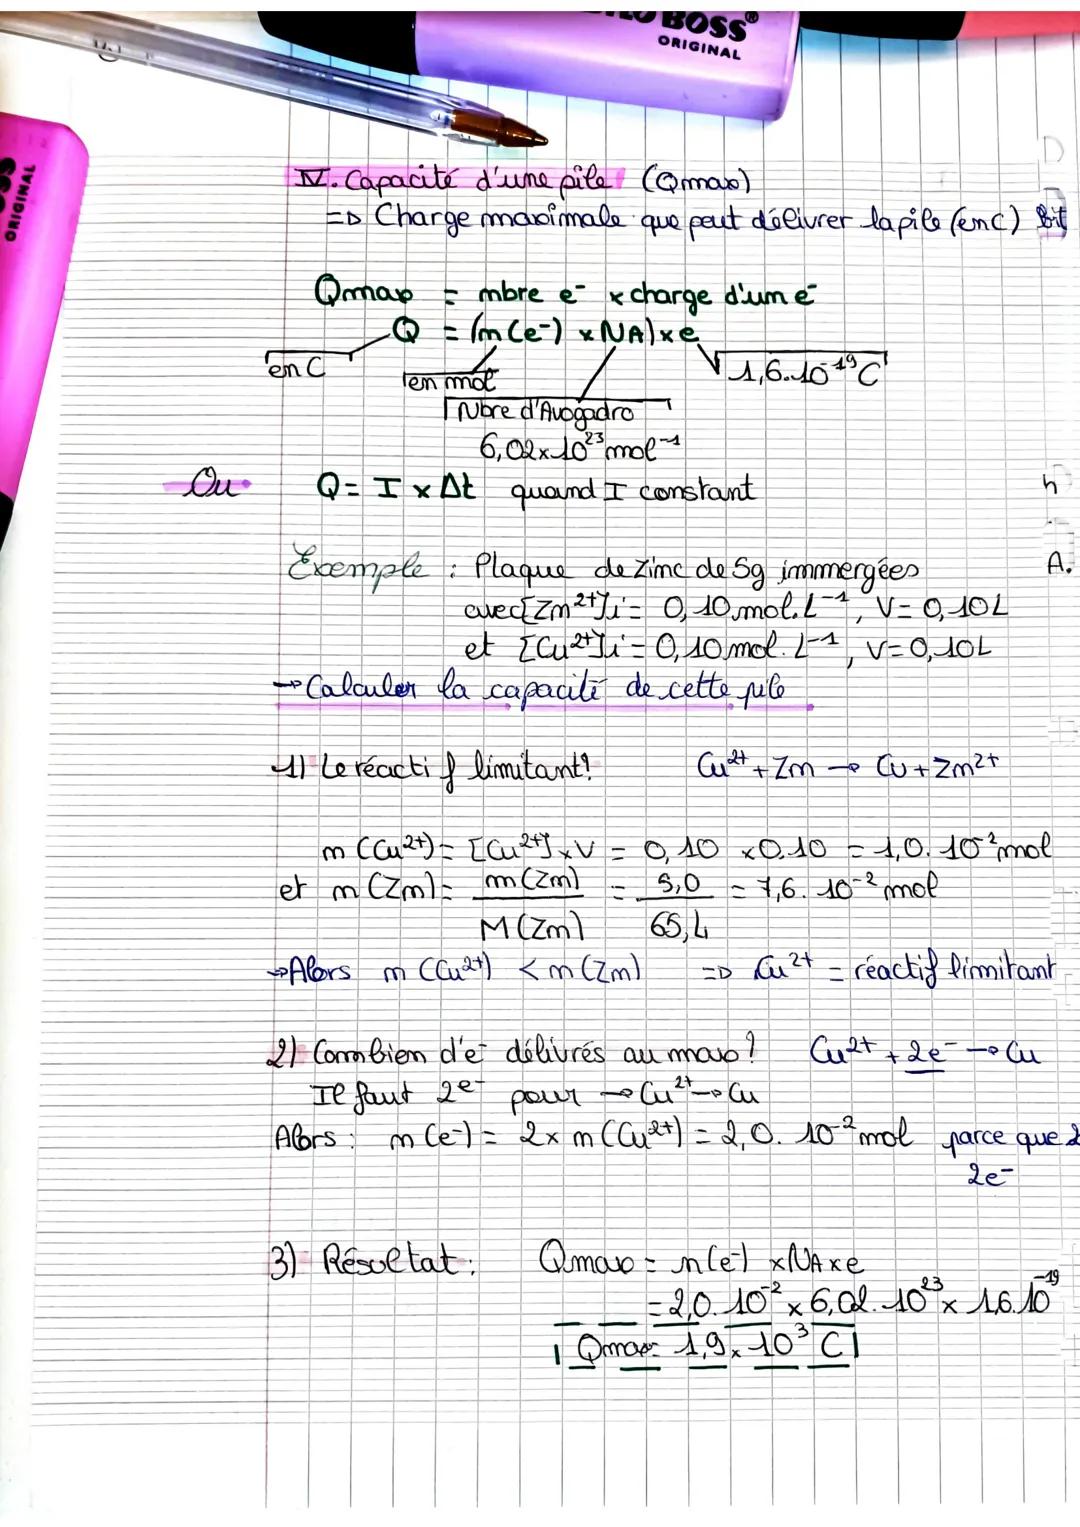 BOSS®
ORIGINAL
ORIGINAL
IV. Capacité d'une pile (Qmax)
=> Charge maximale que peut délivrer la pile (en C)
Qmax = nbre e⁻ x charge d'un e⁻
Q = (n(e⁻) x NA) x e
en C
1,6.10⁻¹⁹ C
en mol
Nbre d'Avogadro
6,02x10²³ mol⁻¹
Ou Q = I x Δt quand I constant
Exemple : Plaque de zinc de 5g immergées
A.
avec [Zn²⁺]i = 0,10 mol.L⁻¹, V= 0,10L
et [Cu²⁺]i = 0,10 mol.L⁻¹, V=0,10L
→ Calculer la capacité de cette pile
1) Le réactif limitant? Cu²⁺ + Zn → Cu + Zn²⁺
n (Cu²⁺) = [Cu²⁺] x V = 0,10 x 0.10 = 1,0. 10⁻² mol
et n (Zn) = m(Zn) / M(Zn) = 5,0 / 65,4 = 7,6. 10⁻² mol
→ Alors n (Cu²⁺) < n (Zn) => Cu²⁺ = réactif limitant
2) Combien d'e⁻ délivrés au max? Cu²⁺ + 2e⁻ → Cu
Il faut 2e⁻ pour → Cu²⁺ → Cu
Alors : n (e⁻) = 2x n (Cu²⁺) = 2,0. 10⁻² mol parce que 2
2e⁻
3) Résultat : Qmax = n(e⁻) x NA x e
= 2,0. 10⁻² x 6,02. 10²³ x 1,6. 10⁻¹⁹
Qmax= 1,9 x 10³ C